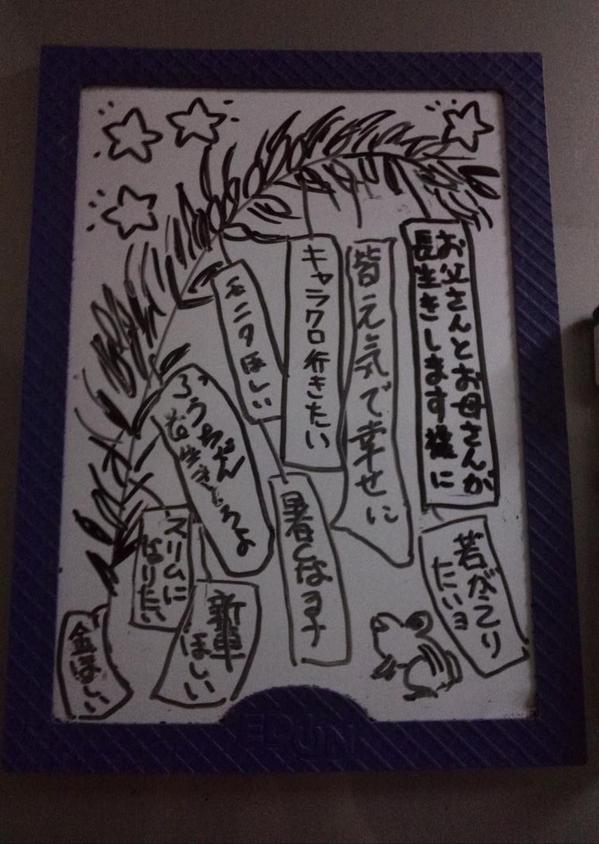 お父さんとお母さんが
長生きします様に
皆元気で幸せに
キャラクロ行きたい
モニタほしい
若がえり
たいヨ
暑くなるナ
ふうちゃん
長生きしろよ
新車
ほしい
スリムに
なりたい
金ほしい